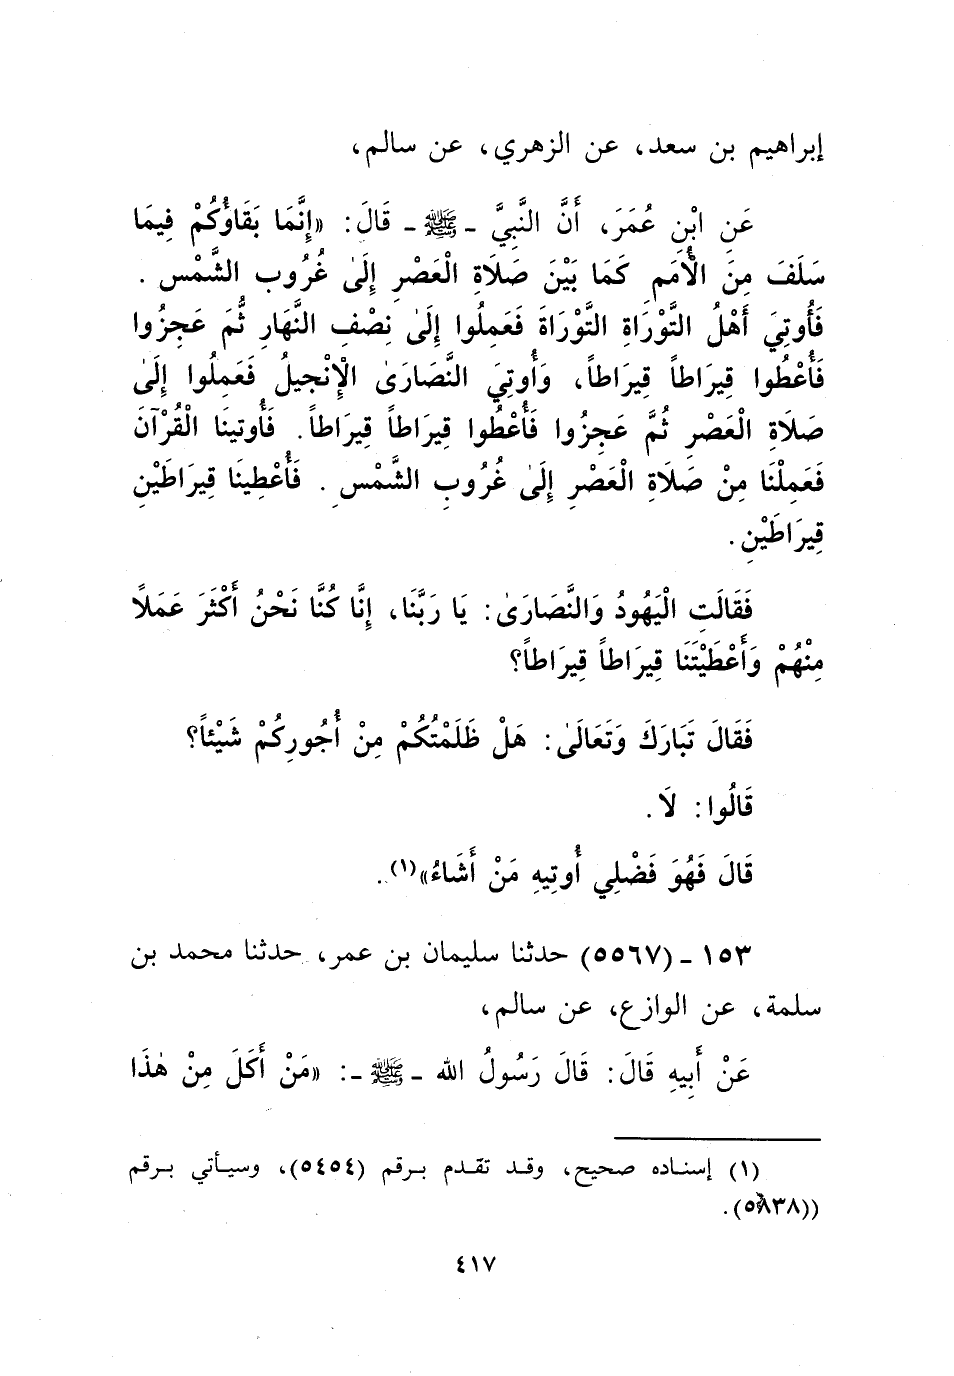 إبراهيم بن سعد، عن الزهري، عن سالم،
عَنِ ابْنِ عُمَرَ، أَنَّ النَّبِيَّ ـ ﷺ ـ قَالَ: «إِنَّمَا بَقَاؤُكُمْ فِيمَا
سَلَفَ مِنَ الْأُمَمِ كَمَا بَيْنَ صَلَاةِ الْعَصْرِ إِلَىٰ غُرُوبِ الشَّمْسِ .
فَأُوتِيَ أَهْلُ التَّوْرَاةِ التَّوْرَاةَ فَعَمِلُوا إِلَىٰ نِصْفِ النَّهَارِ ثُمَّ عَجِزُوا
فَأُعْطُوا قِيرَاطاً قِيرَاطاً، وَأُوتِيَ النَّصَارَىٰ الْإِنْجِيلُ فَعَمِلُوا إِلَىٰ
صَلَاةِ الْعَصْرِ ثُمَّ عَجِزُوا فَأُعْطُوا قِيرَاطاً قِيرَاطاً. فَأُوتِينَا الْقُرْآنَ
فَعَمِلْنَا مِنْ صَلَاةِ الْعَصْرِ إِلَىٰ غُرُوبِ الشَّمْسِ . فَأُعْطِينَا قِيرَاطَيْنِ
قِيرَاطَيْنِ.
فَقَالَتِ الْيَهُودُ وَالنَّصَارَىٰ: يَا رَبَّنَا، إِنَّا كُنَّا نَحْنُ أَكْثَرَ عَمَلاً
مِنْهُمْ وَأَعْطَيْتَنَا قِيرَاطاً قِيرَاطاً؟
فَقَالَ تَبَارَكَ وَتَعَالَىٰ: هَلْ ظَلَمْتُكُمْ مِنْ أُجُورِكُمْ شَيْئاً؟
قَالُوا: لَا.
قَالَ فَهُوَ فَضْلِي أُوتِيهِ مَنْ أَشَاءُ»(١).
١٥٣ ـ (٥٥٦٧) حدثنا سليمان بن عمر، حدثنا محمد بن
سلمة، عن الوازع، عن سالم،
عَنْ أَبِيهِ قَالَ: قَالَ رَسُولُ الله ـ ﷺ ـ: «مَنْ أَكَلَ مِنْ هٰذَا
(١) إسناده صحيح، وقد تقدم برقم (٥٤٥٤)، وسيأتي برقم
((٥٨٣٨).
٤١٧